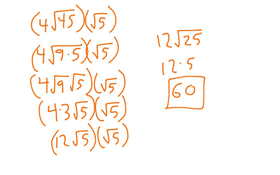 (4√45)(√5)
(4√9·5)(√5)
(4√9 √5)(√5)
(4·3√5)(√5)
(12√5)(√5)
12√25
12·5
60